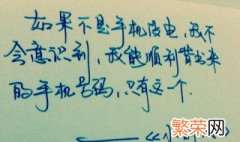 如果不是手机没电，我不
会意识到，我能顺利背出来
的手机号码，只有这一个.
繁荣网